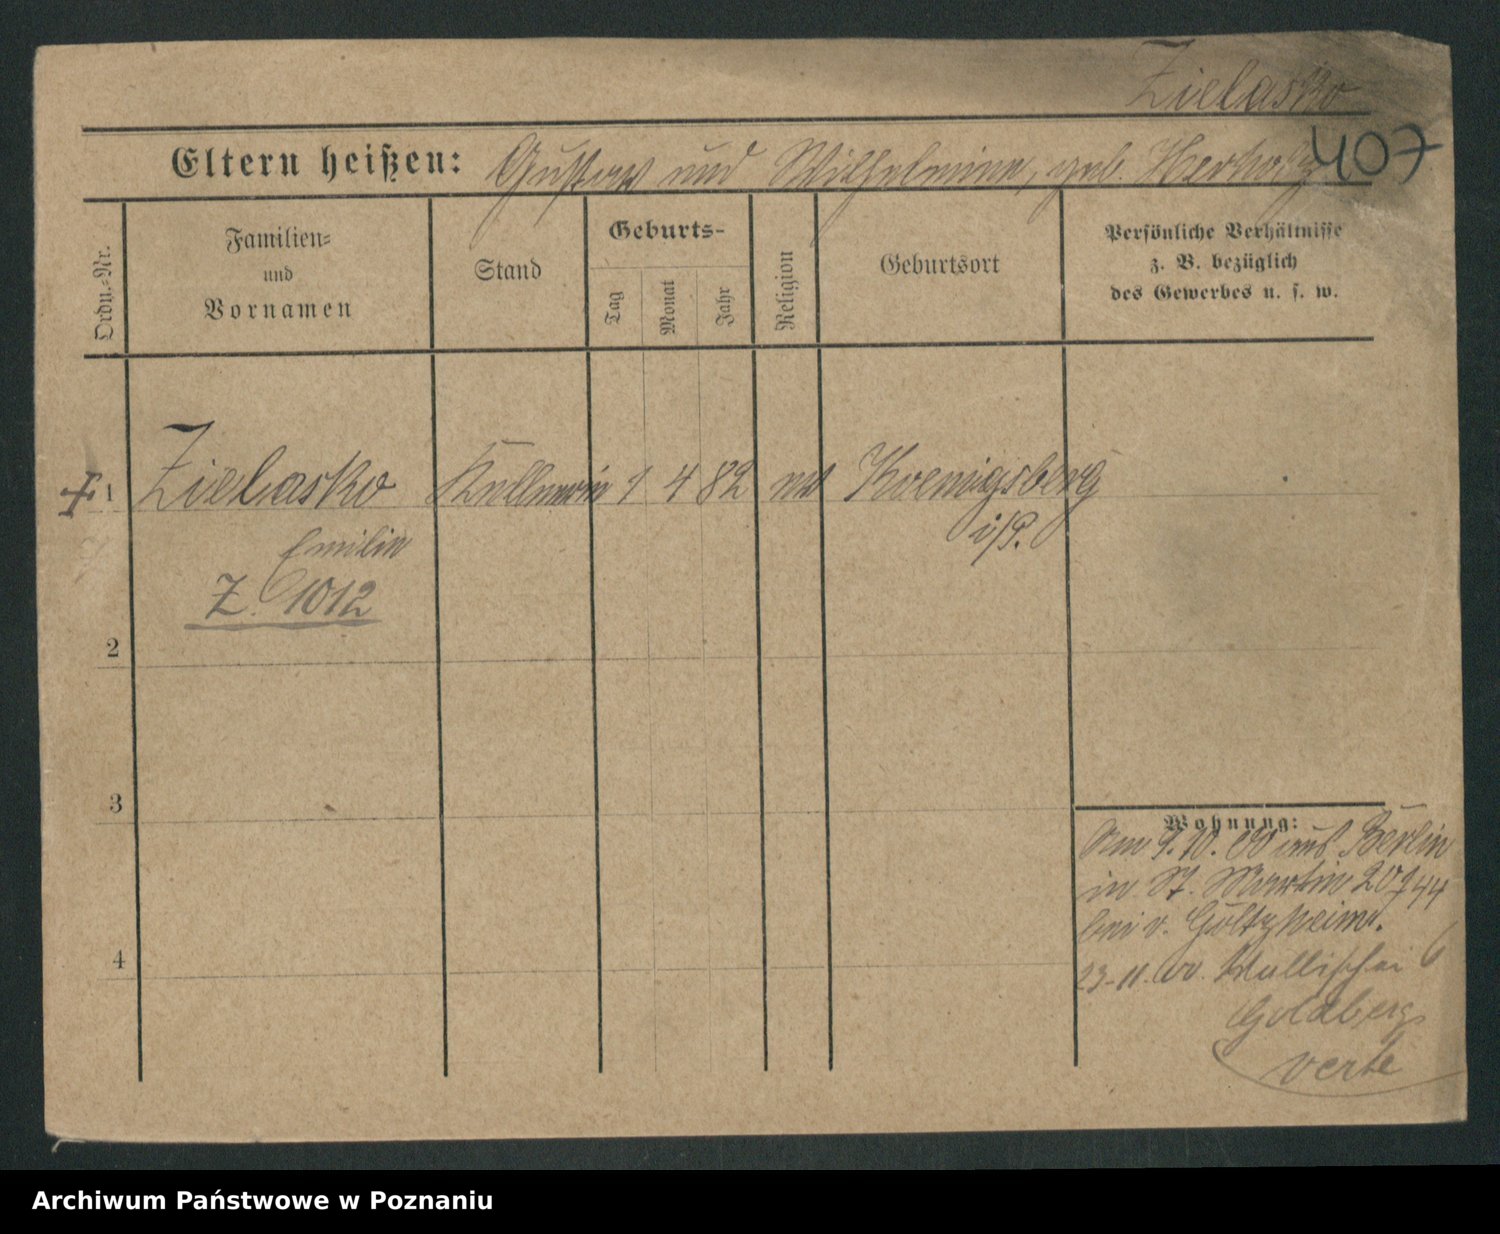 Zielasko
407
Eltern heißen: Gustav und Wilhelmine, geb.
Ordn.-Nr.
Familien-
und
Vornamen
Stand
Geburts-
Tag
Monat
Jahr
Religion
Geburtsort
Persönliche Verhältnisse
z. B. bezüglich
des Gewerbes u. s. w.
1 Zielasko Kellnerin 1 4 82 Koenigsberg
i/P.
Emilie
Z. 1012
2
3
4
Wohnung:
Am 9.10.00 aus Berlin
in St. Martin
bei v.
23-11.00. Wallischei 6
Goldberg
verte
Archiwum Państwowe w Poznaniu